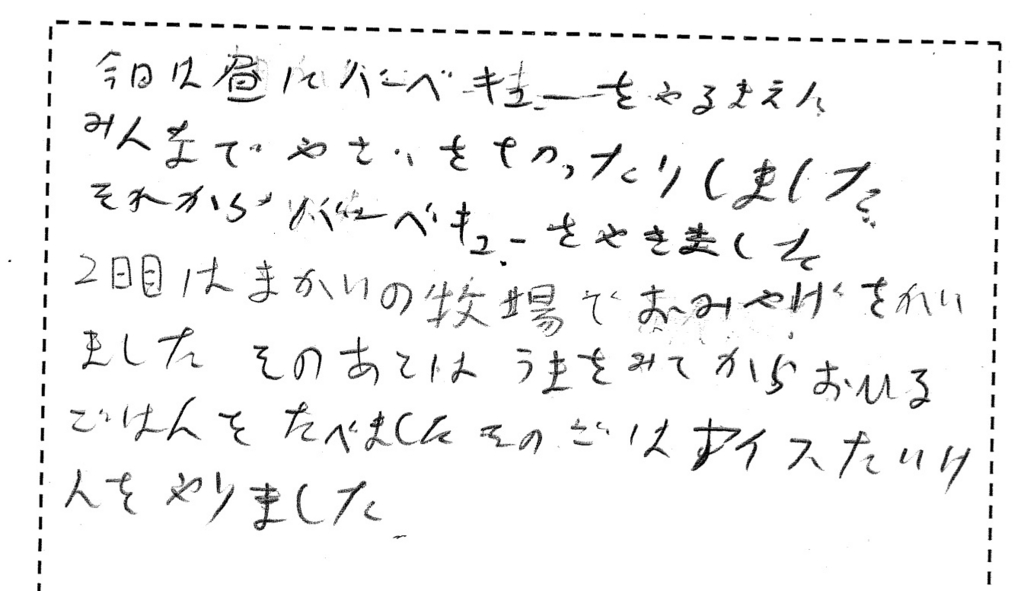 今日は昼にバーベキューをやるまえに
みんなでやさいをきったりしました。
それからバーベキューをやきました
2日目はまかいの牧場でおみやげをかい
ました そのあとはうまをみてからおひる
ごはんをたべましたそのごはアイスたいけ
んをやりました